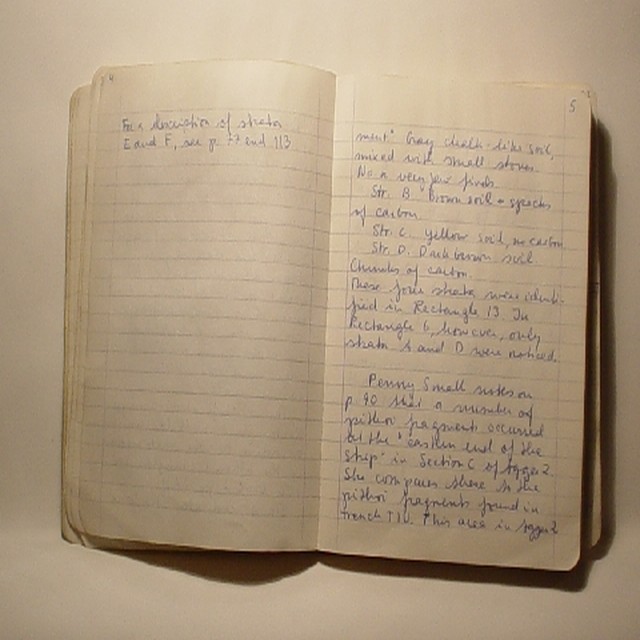 4
For a description of strata
E and F, see p. 77 and 113
5
ment". Gray chalk-like soil,
mixed with small stones.
No or very few finds.
Str. B Brown soil + specks
of carbon
Str. C. Yellow soil, no carbon
Str. D. Dark brown soil.
Chunks of carbon.
These four strata were identi-
fied in Rectangle 13. In
Rectangle 6, however, only
strata A and D were noticed.
Penny Small notes on
p 90 that a number of
pithoi fragments occurred
at the "eastern end of the
step" in Section C of Tagger 2.
She compares these to the
pithoi fragments found in
trench T10. This area in Tagger 2